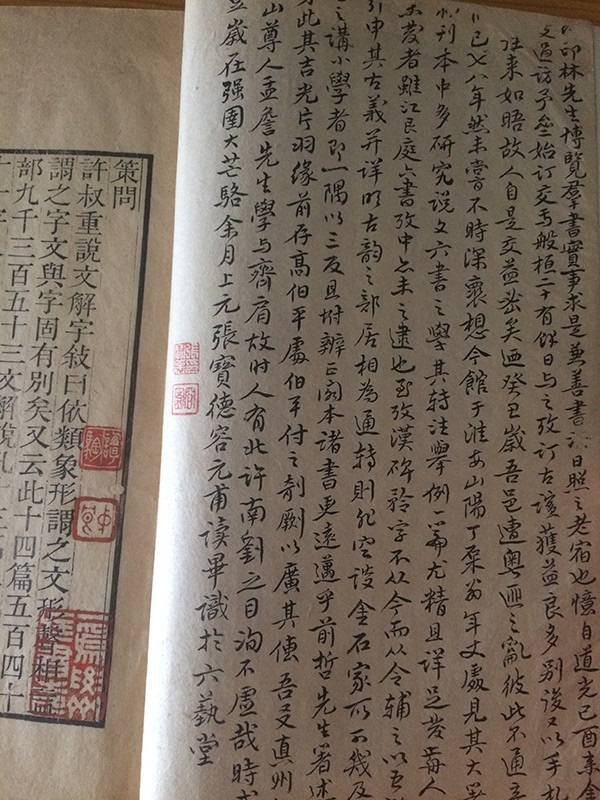 印林先生博覽羣書實事求是兼善書日照之老宿也憶自道光己酉來金
過訪予壘始訂交焉般桓二十有餘日与之攷訂古誼獲益良多别後又以手札
往来如晤故人自是交益密矣廼癸丑歲吾邑遭粤匪之亂彼此不通
已七八年然未嘗不時深褱想今館于淮安山陽丁㮚翁年丈處見其大
刊本中多研究説文六書之學其轉注舉例一篇尤精且詳足发前人
發者雖江艮庭六書攷中亦未之逮也至攷漢碑矜字不从今而从令辅之以
引申其古義并詳明古韵之部居相為通轉則非空談金石家所可幾及
之講小學者即一隅以三反且坿辨正閣本諸書更遠邁乎前哲先生著述
此其吉光片羽缘前存高伯平處伯平付之剞劂以廣其傳吾又真州
山尊人孟詹先生學与齊肩故时人有此許南劉之目洵不虛哉時
歲在强圉大芒駱余月上元張寶德容元甫读畢識於六藝堂
策問
許叔重說文解字敍曰依類象形謂之文形聲相益
謂之字文與字固有別矣又云此十四篇五百四十
部九千三百五十三文解說凡十三萬
十一字